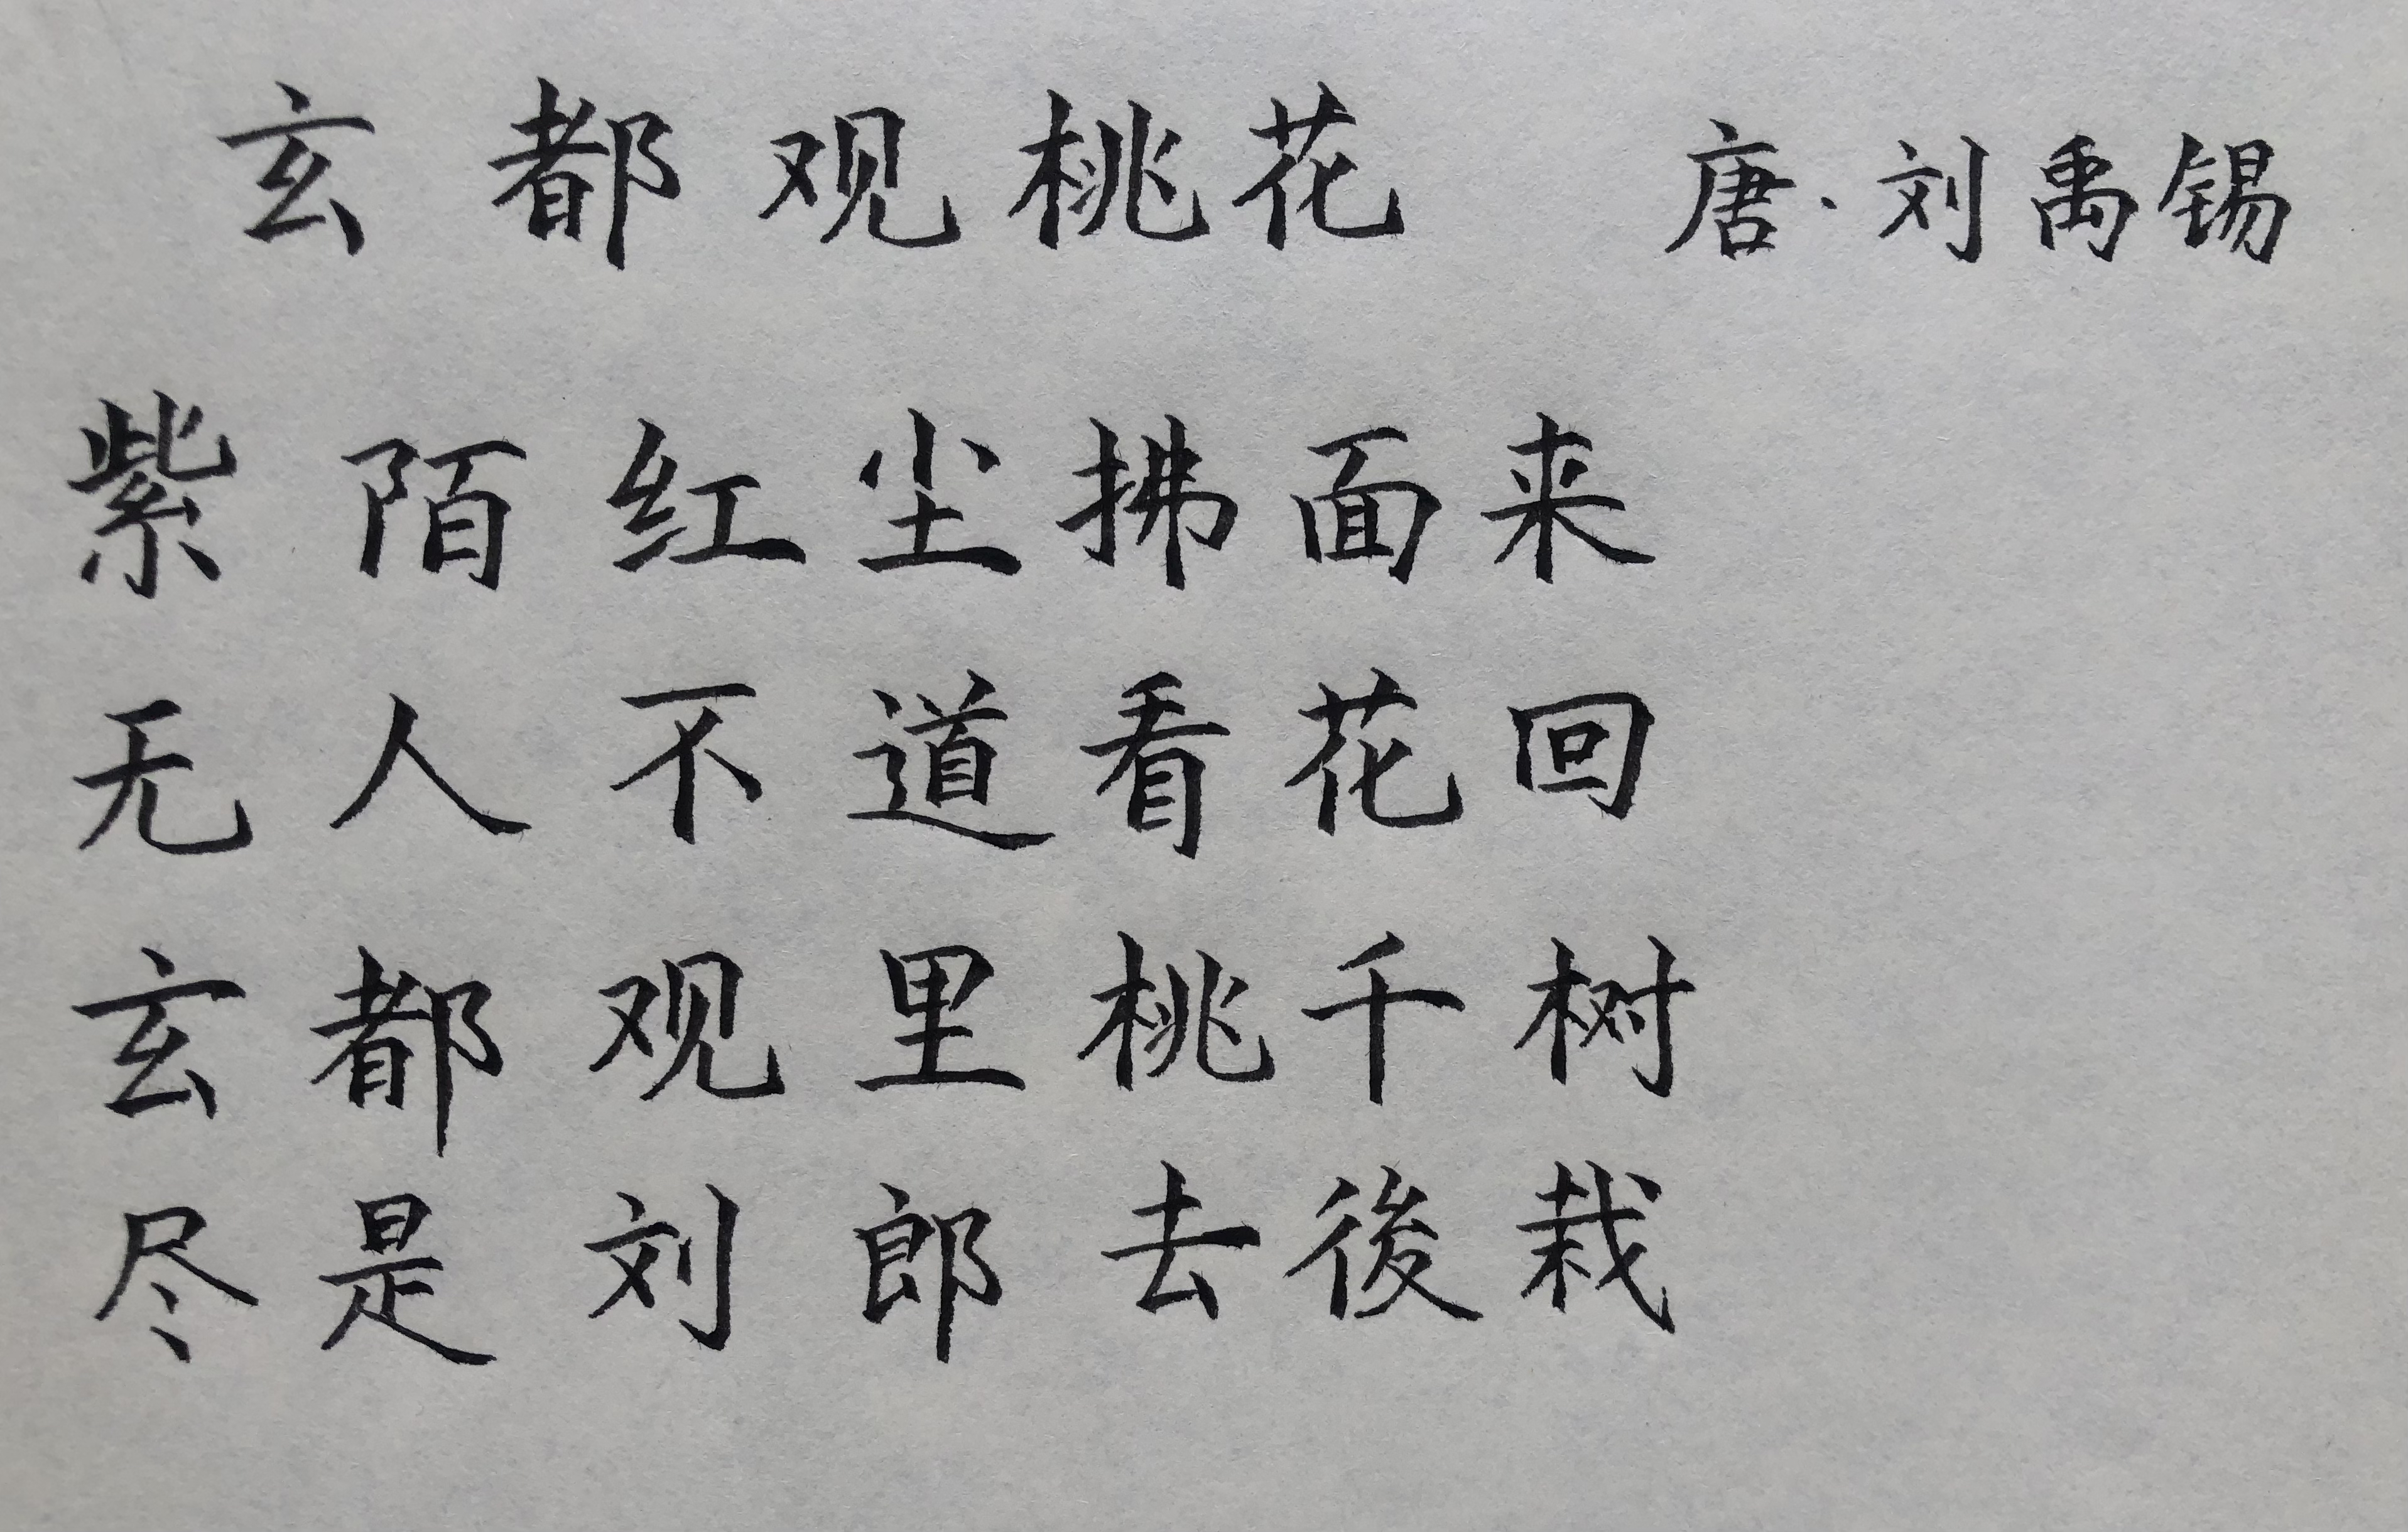 玄都观桃花 唐·刘禹锡
紫陌红尘拂面来
无人不道看花回
玄都观里桃千树
尽是刘郎去後栽